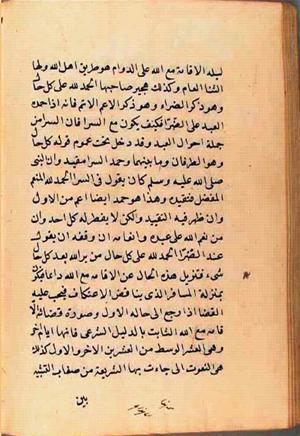 ليله الاقامة مع الله على الدوام هو طريق اهل الله ولها
الثنا العام وكذلك هجير صاحبها الحمد لله على كل حال
وهو ذكر الضراء وهو ذكر الاعم الاتم فانه اذا حمده
العبد على الضرا فكيف يكون مع السرا فان السرا من
جملة احوال العبد وقد دخل تحت عموم قوله كل حال
وهو الطرفان وما بينهما وحمد السرا مقيد وان النبي
صلى الله عليه وسلم كان يقول في السرا الحمد لله المنعم
المفضل فتقيده وهذا هو حمد ايضا اعم من الاول
وان ظهر فيه التقييد ولكن لا يفطن له كل احد وان
من نعم الله على عبده وانعامه ان وفقه ان يقول
عند الضرا الحمد لله على كل حال من يرا الله بعد كل حال
شيء فتنزيل هذه الحال عن الاقامة مع الله دايما
بمنزلة المسافر الذي يناقض الاعتكاف فيجب عليه
القضا اذا رجع الى حاله الاول وصورة قضائه الا
قامة مع الله الثابت بالدليل الشرعي فانها ايام اخر
وهي العشر الوسط من العشرين الاخر والاول كذلك
هي النعوت التي جاءت بها الشريعة من صفات التشبيه
بين